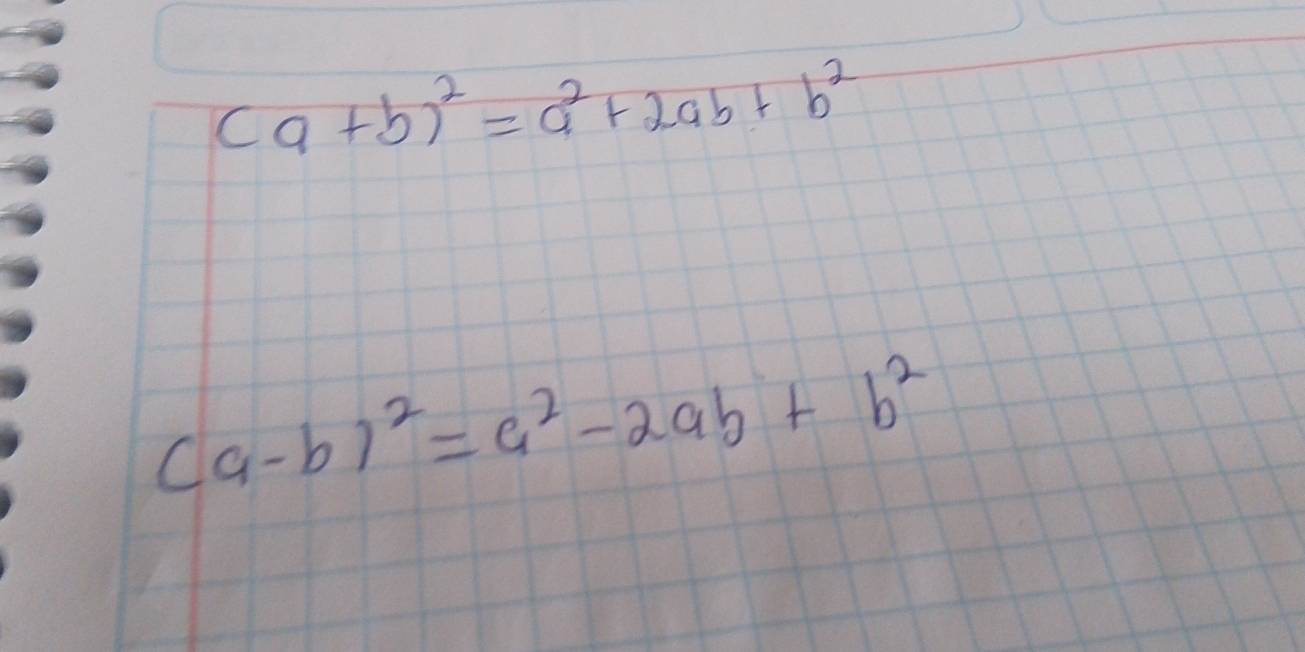 (a+b)² = a² + 2ab + b²
(a-b)² = a² - 2ab + b²